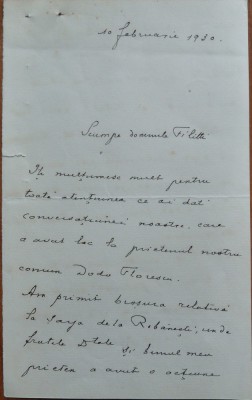 10 februarie 1930.
Scumpe domnule Filitti
Iți mulțumesc mult pentru
toată atențiunea ce ai dat
conversațiunei noastre, care
a avut loc la prietenul nostru
comun Dodo Florescu.
Am primit broșura relativă
la Șarja de la Robănești, unde
fratele Dtale și bunul meu
prieten a avut o acțiune